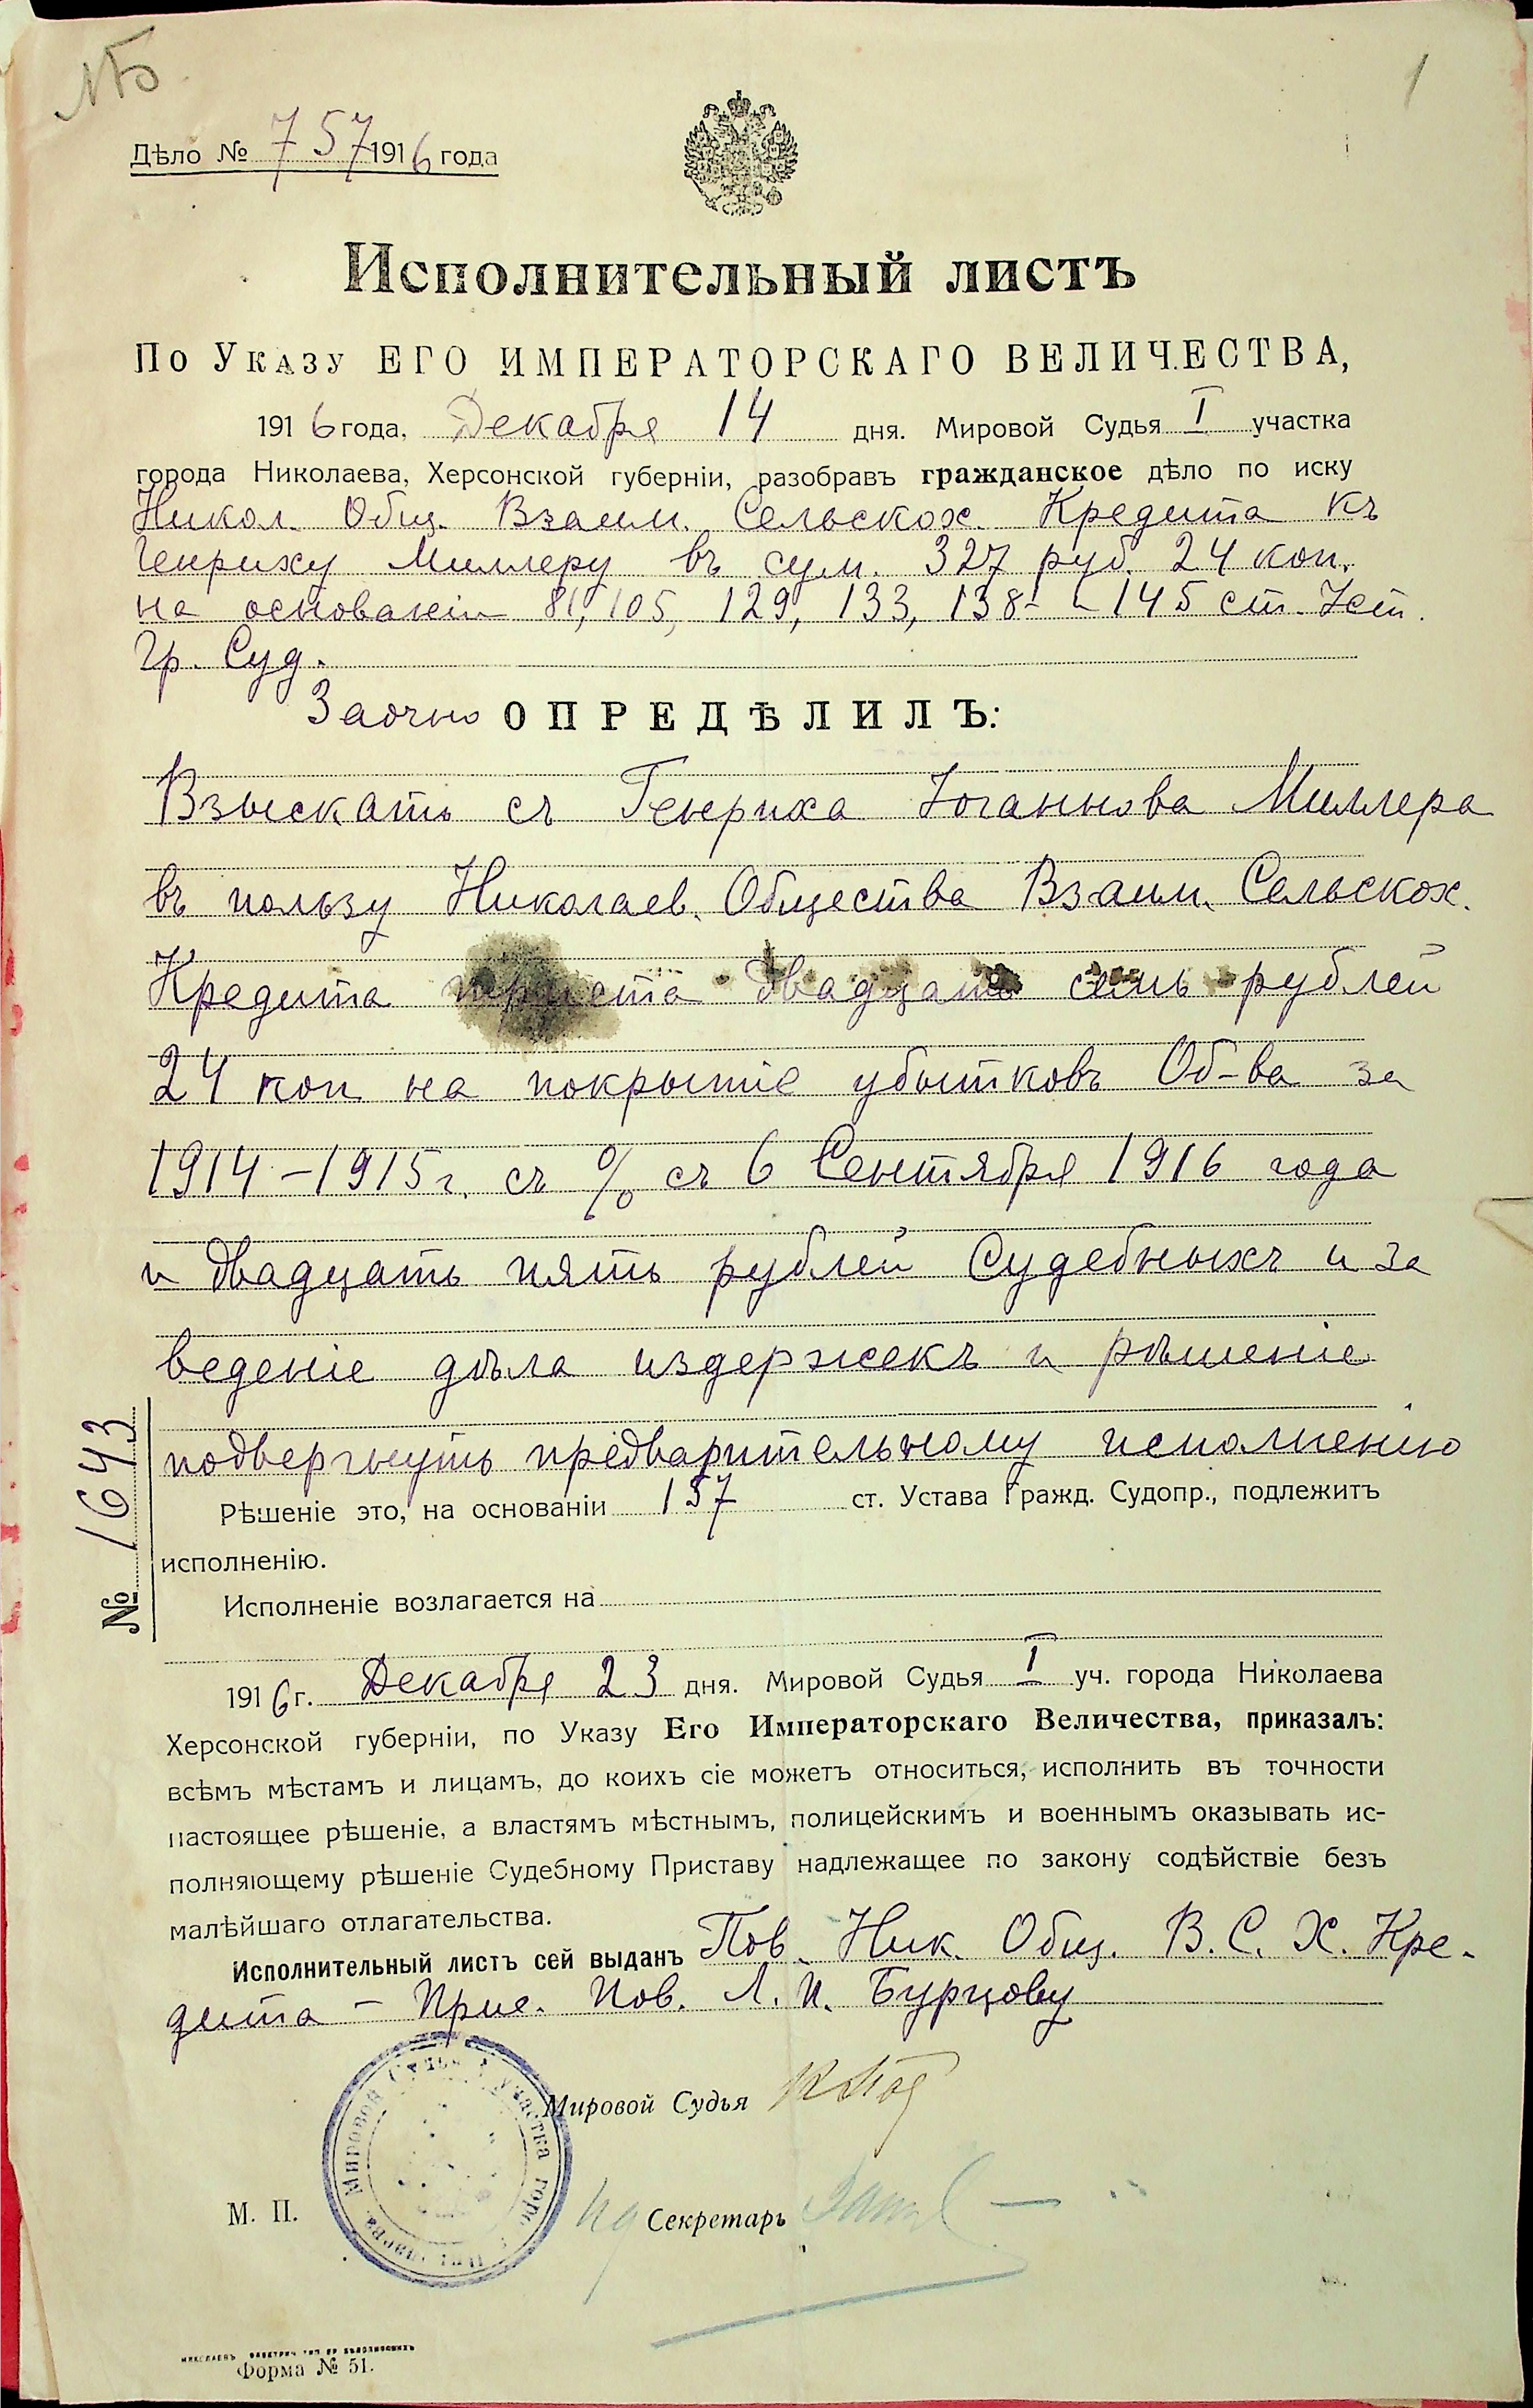 №5
1
Дѣло № 757 1916 года
Исполнительный листъ
По Указу ЕГО ИМПЕРАТОРСКАГО ВЕЛИЧЕСТВА,
1916 года, Декабря 14 дня. Мировой Судья I участка
города Николаева, Херсонской губерніи, разобравъ гражданское дѣло по иску
Никол. Общ. Взаим. Сельскох. Кредита къ
Генриху Миллеру въ сум. 327 руб. 24 коп.
на основаніи 81, 105, 129, 133, 138 и 145 ст. Уст.
Гр. Суд.
Заочно ОПРЕДѢЛИЛЪ:
Взыскать съ Генриха Іоганнова Миллера
въ пользу Николаев. Общества Взаим. Сельскох.
Кредита триста двадцать семь рублей
24 коп на покрытіе убытковъ Об-ва за
1914-1915 г. съ % съ 6 Сентября 1916 года
и двадцать пять рублей Судебныхъ и за
веденіе дѣла издержекъ и рѣшеніе
подвергнуть предварительному исполненію
№ 1643
Рѣшеніе это, на основаніи 157 ст. Устава Гражд. Судопр., подлежитъ
исполненію.
Исполненіе возлагается на
1916 г. Декабря 23 дня. Мировой Судья I уч. города Николаева
Херсонской губерніи, по Указу Его Императорскаго Величества, приказалъ:
всѣмъ мѣстамъ и лицамъ, до коихъ сіе можетъ относиться, исполнить въ точности
настоящее рѣшеніе, а властямъ мѣстнымъ, полицейскимъ и военнымъ оказывать ис-
полняющему рѣшеніе Судебному Приставу надлежащее по закону содѣйствіе безъ
малѣйшаго отлагательства.
Исполнительный листъ сей выданъ Пов. Ник. Общ. В. С. Х. Кре-
дита - Прис. Пов. Л. И. Бурцову
Мировой Судья
Мировой Судья участка
М. П.
Ид Секретарь
Форма № 51.